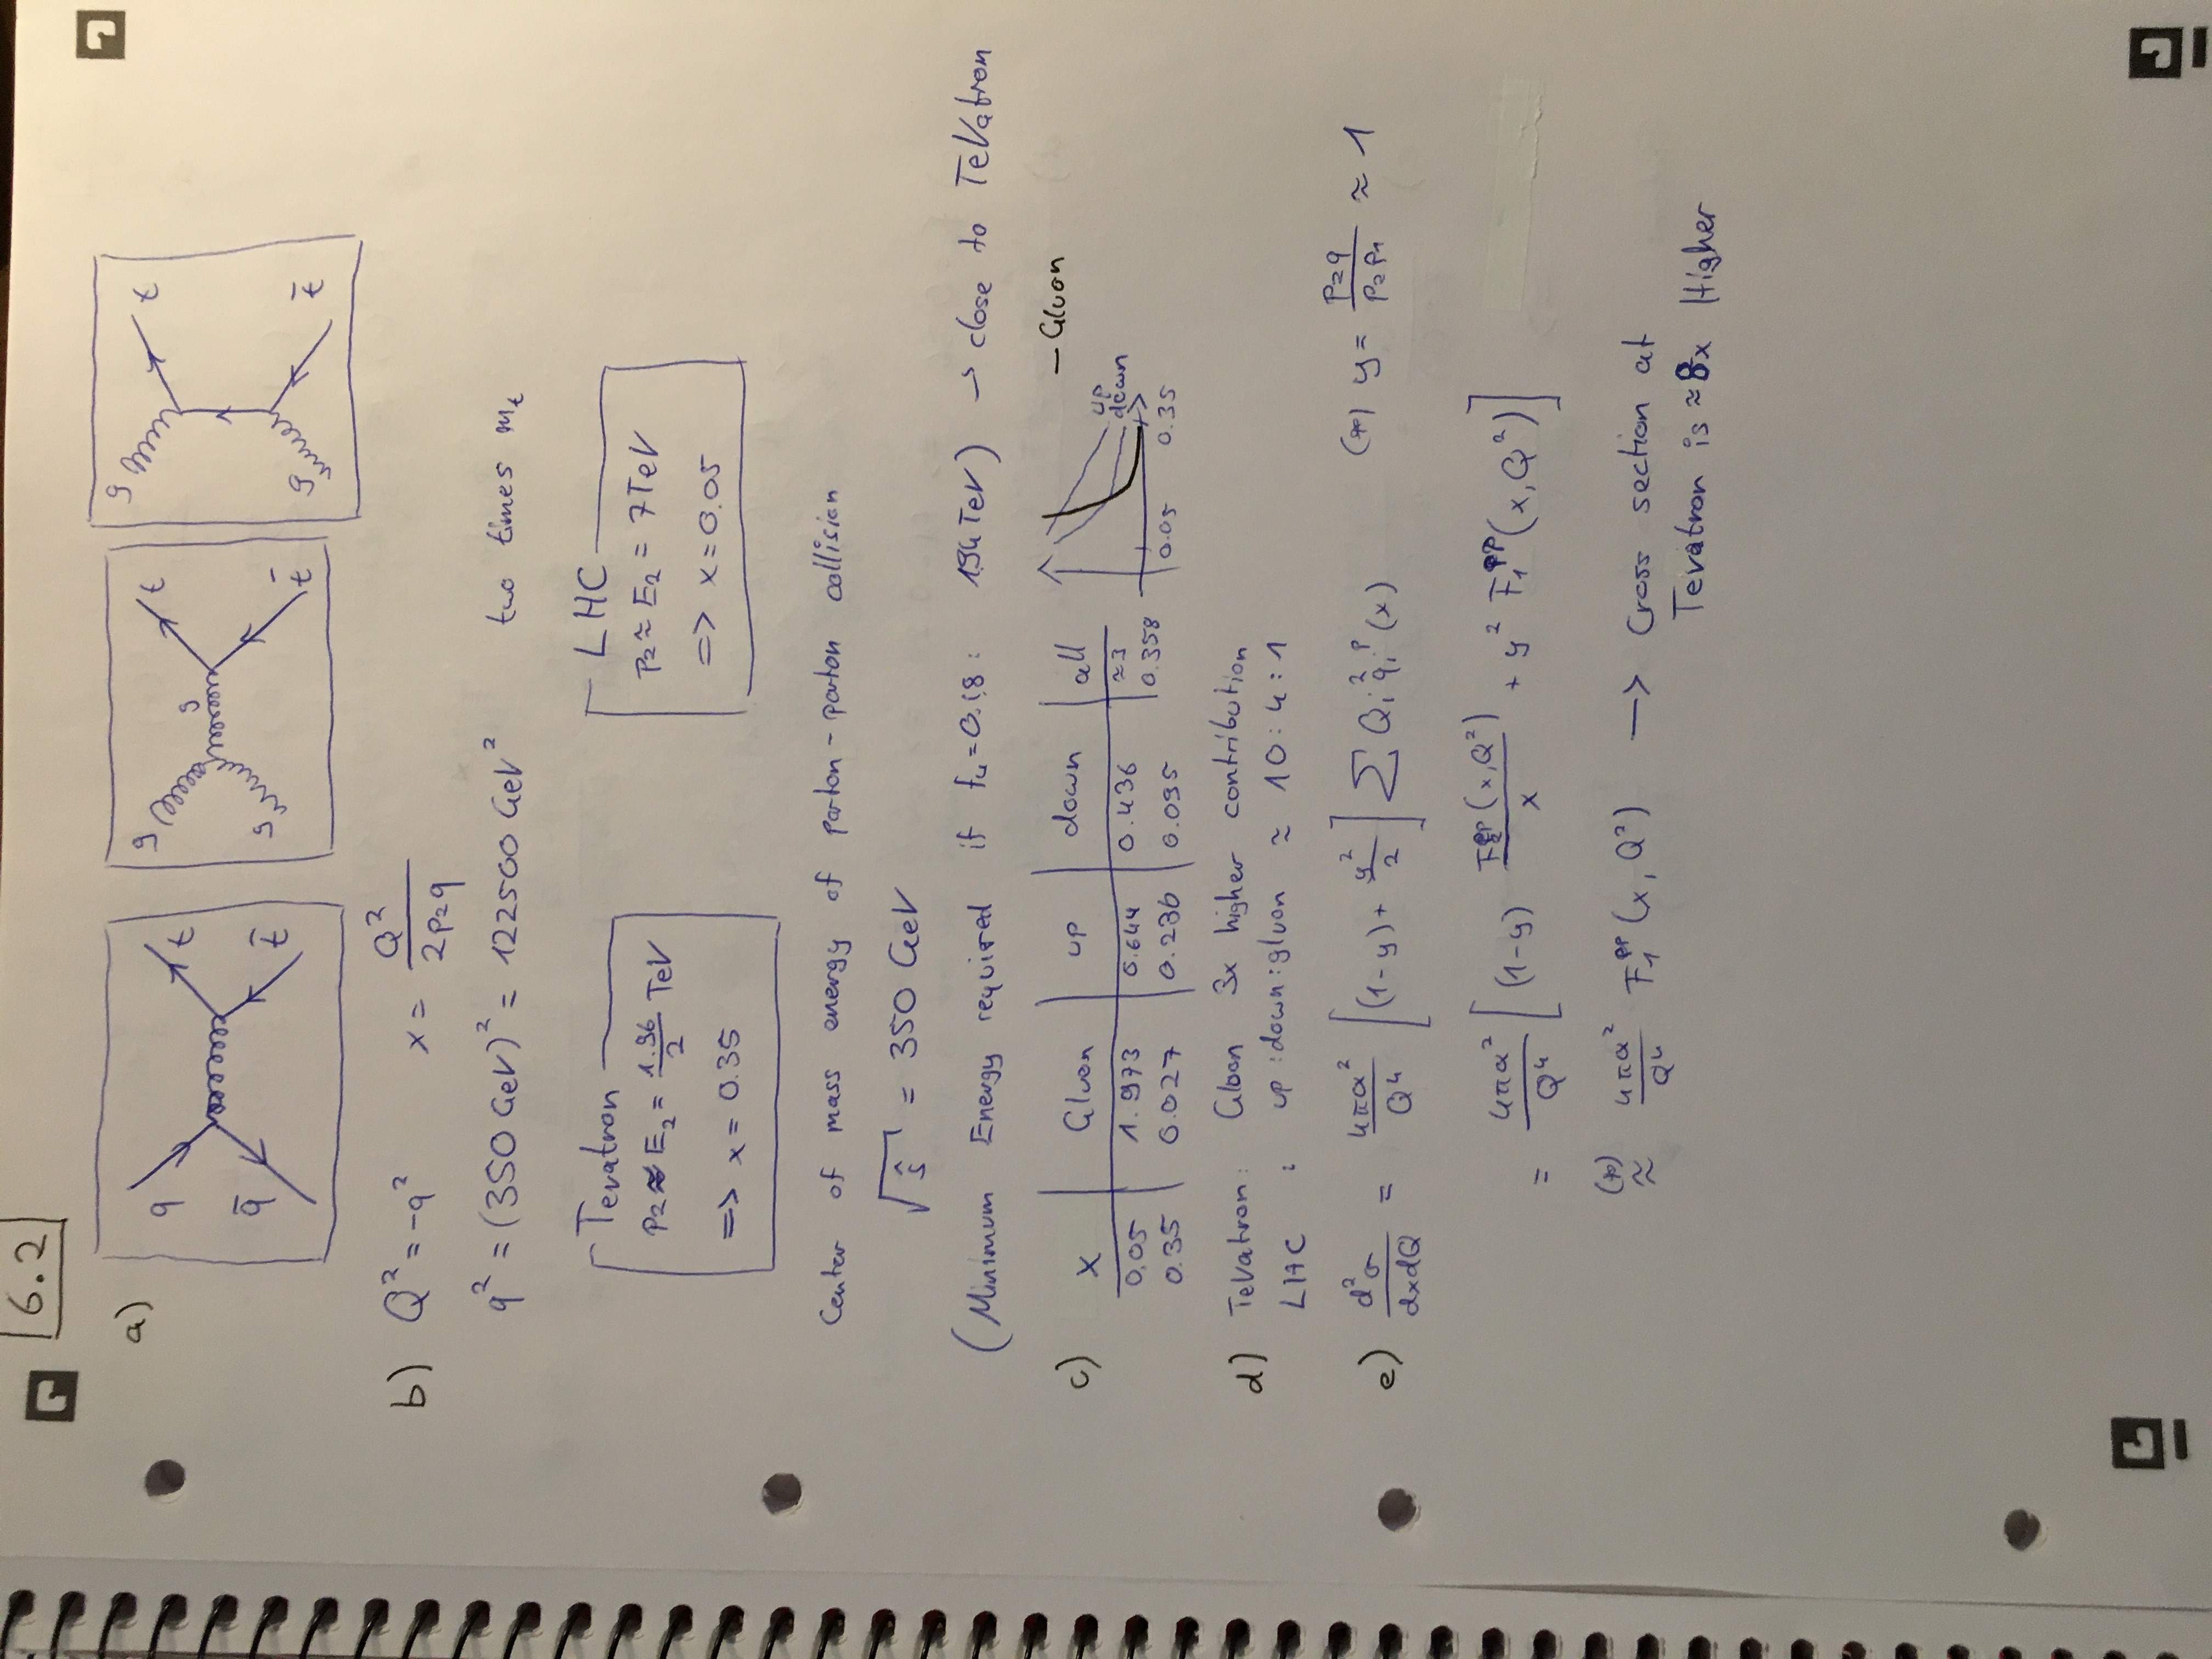 6.2
a) q q̄ t t̄ g g g t t̄ g g t t̄
b) Q² = -q² x = Q² / 2p₂q
q² = (350 GeV)² = 122500 GeV² two times mₜ
Tevatron LHC
p₂ ≈ E₂ = 1.96/2 TeV p₂ ≈ E₂ = 7TeV
=> x = 0.35 => x = 0.05
Center of mass energy of parton-parton collision
√ŝ = 350 GeV
(Minimum Energy required if fᵤ = 0.18: 1.94 TeV) → close to TeVatron
c) x Gluon up down all — Gluon
0.05 1.973 0.644 0.436 ≈3 up
0.35 0.027 0.236 0.095 0.358 down
0.05 0.35
d) TeVatron: Gloon 3x higher contribution
LHC : up:down:gluon ≈ 10:4:1
e) d²σ/dxdQ = 4πα²/Q⁴ [(1-y) + y²/2] ∑ Qᵢ² qᵢᵖ(x) (*) y = p₂q/p₂p₁ ≈ 1
= 4πα²/Q⁴ [(1-y) F₂ᵖᵖ(x,Q²)/x + y² F₁ᵖᵖ(x,Q²)]
(*) ≈ 4πα²/Q⁴ F₁ᵖᵖ(x,Q²) → Cross section at
Tevatron is ≈8x Higher